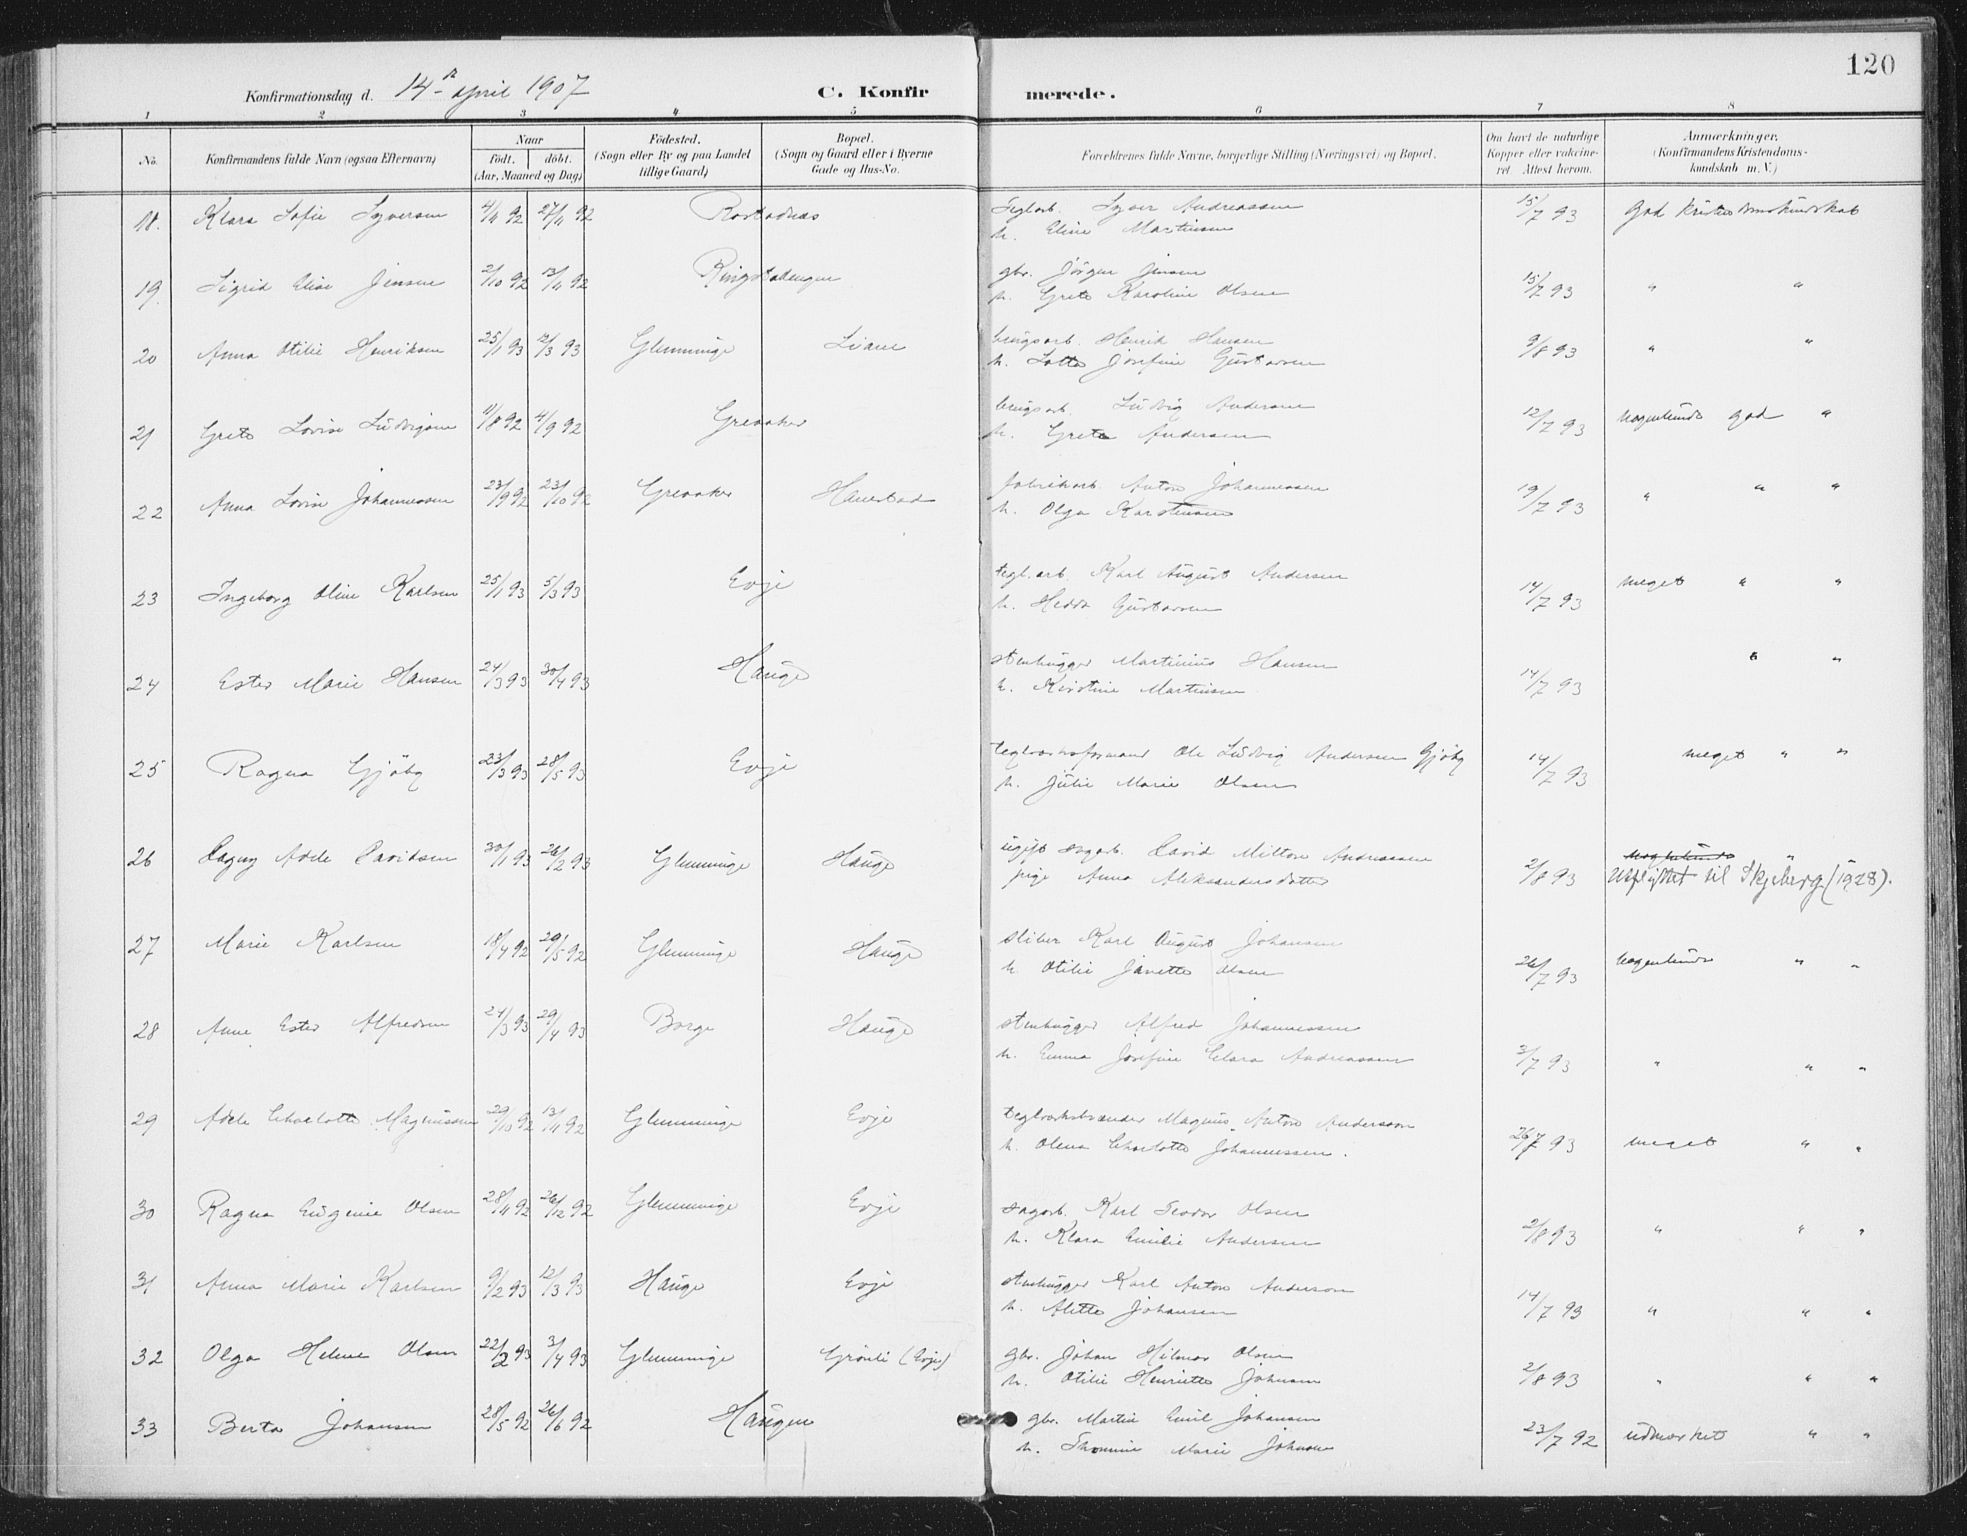 120
Konfirmationsdag d. 14de april 1907 C. Konfirmerede.
1 2 3 4 5 6 7 8
No. Konfirmandens fulde Navn (ogsaa Efternavn) Naar födt. döbt. (Aar, Maaned og Dag) Födested. (Sogn eller By og paa Landet tillige Gaard) Bopæl. (Sogn og Gaard eller i Byerne Gade og Hus-No. Forældrenes fulde Navne, borgerlige Stilling (Næringsvei) og Bopæl. Om havt de naturlige Kopper eller vakcineret. Attest herom. Anmærkninger. (Konfirmandens Kristendomskundskab m. V.)
18. Klara Sofie Syversen 4/11 92 27/11 92 Rostadnæs Teglarb. Syver Andreassen 15/7 93 God Kristendomskundskab
h. Eline Martinsen
19. Sigrid Elise Jensen 2/10 92 13/11 92 Ringstadengen gbr. Jörgen Jensen 15/7 93 " "
h. Grete Karoline Olsen
20 Anna Otilie Henriksen 25/1 93 12/3 93 Glemminge Liane brugsarb. Henrik Hansen 9/8 93 " "
h. Lotte Josefine Gustavsen
21 Grete Lovise Ludvigsen 11/8 92 4/9 92 Greaaker brugsarb. Ludvig Andersen 12/7 93 nogenlunde god "
h. Grete Andersen
22 Anna Lovise Johannessen 23/9 92 23/10 92 Greaaker Hanestad Fabrikarb. Anton Johannessen 19/7 93 " " "
h. Olga Karstensen
23 Ingeborg Oline Karlsen 25/1 93 5/3 93 Evje tegl.arb. Karl August Andersen 14/7 93 meget " "
h. Hedda Gustavsen
24 Ester Marie Hansen 24/3 93 30/4 93 Hauge stenhugger Martinius Hansen 14/7 93 " "
h. Kristine Martinsen
25 Ragna Gjöby 23/3 93 28/5 93 Evje teglværksformand Ole Ludvig Andersen Gjöby 14/7 93 meget " "
h. Julie Marie Olsen
26 Dagny Adele Davidsen 30/1 93 26/2 93 Glemminge Hauge ugift sagarb. David Milton Andreassen 2/8 93 nogenlunde "
pige Anna Aleksandersdatter Utflyttet til Skjeberg (1928).
27 Marie Karlsen 18/4 92 29/5 92 Glemminge Hauge sliber Karl August Johansen 26/7 93 nogenlunde " "
h. Otilie Janette Olsen
28 Anne Ester Alfredsen 24/3 93 29/4 93 Borge Hauge stenhugger Alfred Johannessen 3/7 93 " " "
h. Emma Josefine Clara Andreassen
29 Adele Charlotte Magnussen 29/10 92 13/11 92 Glemminge Evje teglværksbrænder Magnus Anton Anderson 26/7 93 meget " "
h. Olena Charlotte Johannessen.
30 Ragna Eugenie Olsen 28/11 92 26/12 92 Glemminge Evje sagarb. Karl Teodor Olsen 2/8 93 " " "
h. Klara Emilie Andersen
31 Anna Marie Karlsen 9/2 93 12/3 93 Hauge Evje stenhugger Karl Anton Anderson 14/7 93 " " "
h. Alette Johansen
32 Olga Helene Olsen 22/2 93 3/4 93 Glemminge Grönli (Evje) gbr. Johan Hilmar Olsen 2/8 93 " " "
h. Otilie Henriette Johnsen
33 Berta Johansen 28/5 92 26/6 92 Haugen gbr. Martin Emil Johansen 23/7 92 udmærket " "
h. Thomine Marie Johnsen